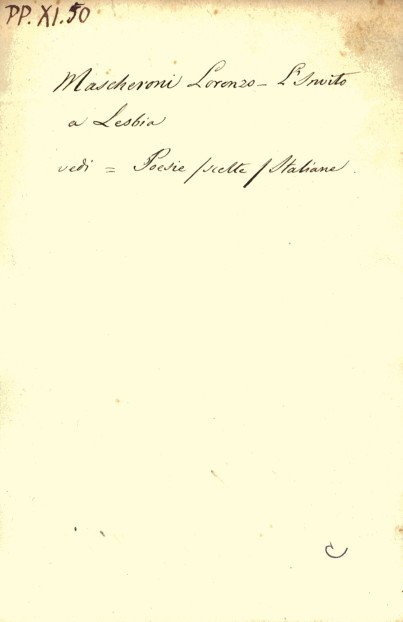 PP. XI. 50
Mascheroni Lorenzo - L'Invito
a Lesbia
vedi = Poesie scelte / Italiane.